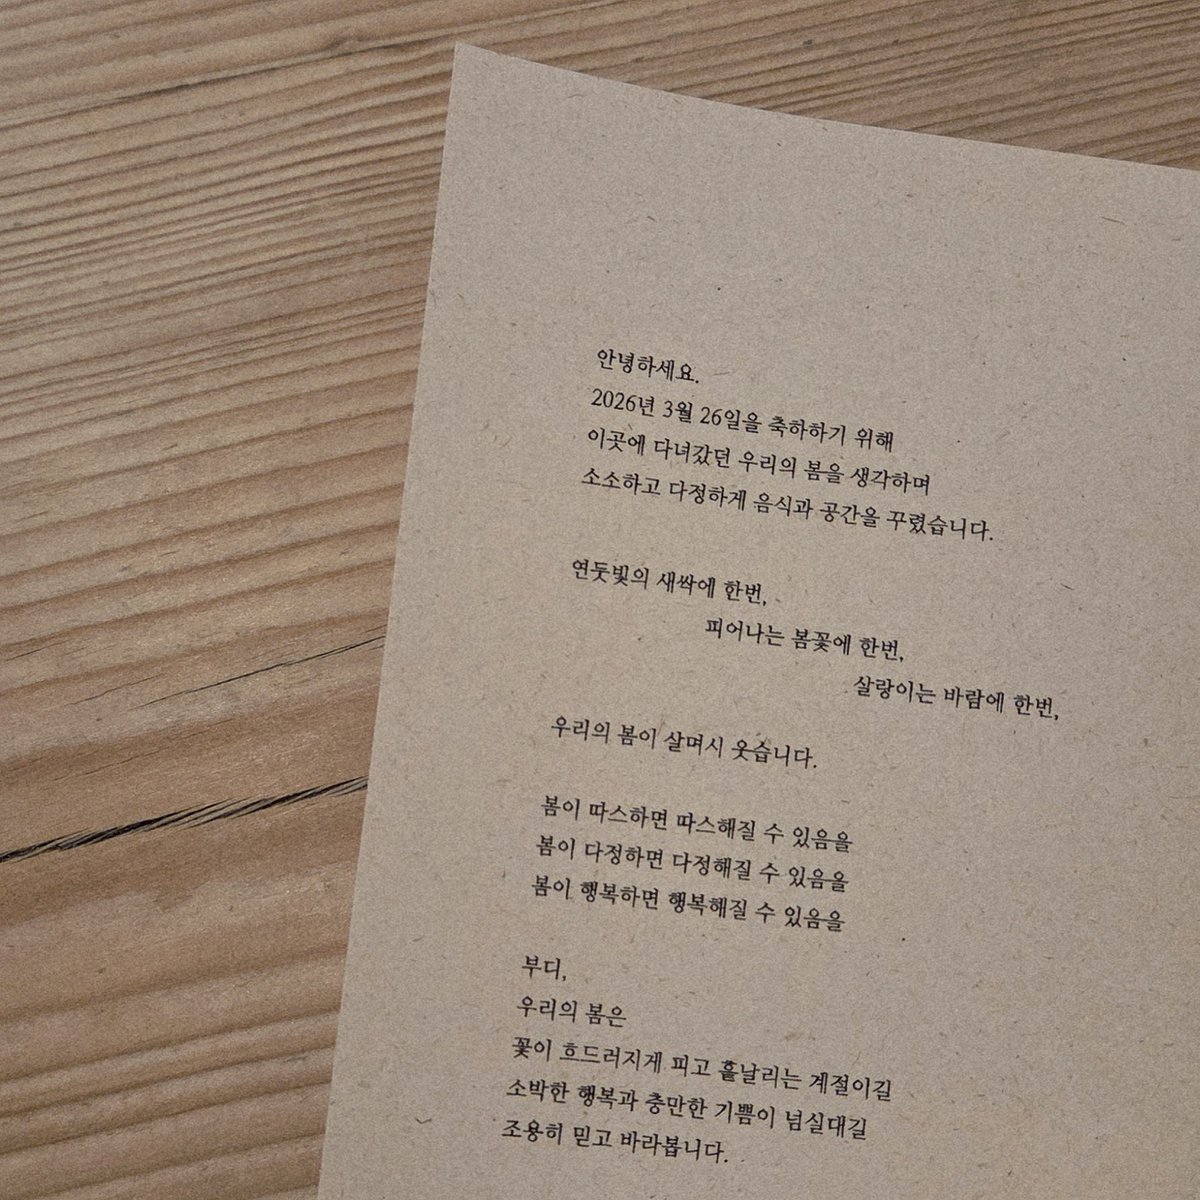 안녕하세요.
2026년 3월 26일을 축하하기 위해
이곳에 다녀갔던 우리의 봄을 생각하며
소소하고 다정하게 음식과 공간을 꾸렸습니다.
연둣빛의 새싹에 한번,
피어나는 봄꽃에 한번,
살랑이는 바람에 한번,
우리의 봄이 살며시 웃습니다.
봄이 따스하면 따스해질 수 있음을
봄이 다정하면 다정해질 수 있음을
봄이 행복하면 행복해질 수 있음을
부디,
우리의 봄은
꽃이 흐드러지게 피고 흩날리는 계절이길
소박한 행복과 충만한 기쁨이 넘실대길
조용히 믿고 바라봅니다.